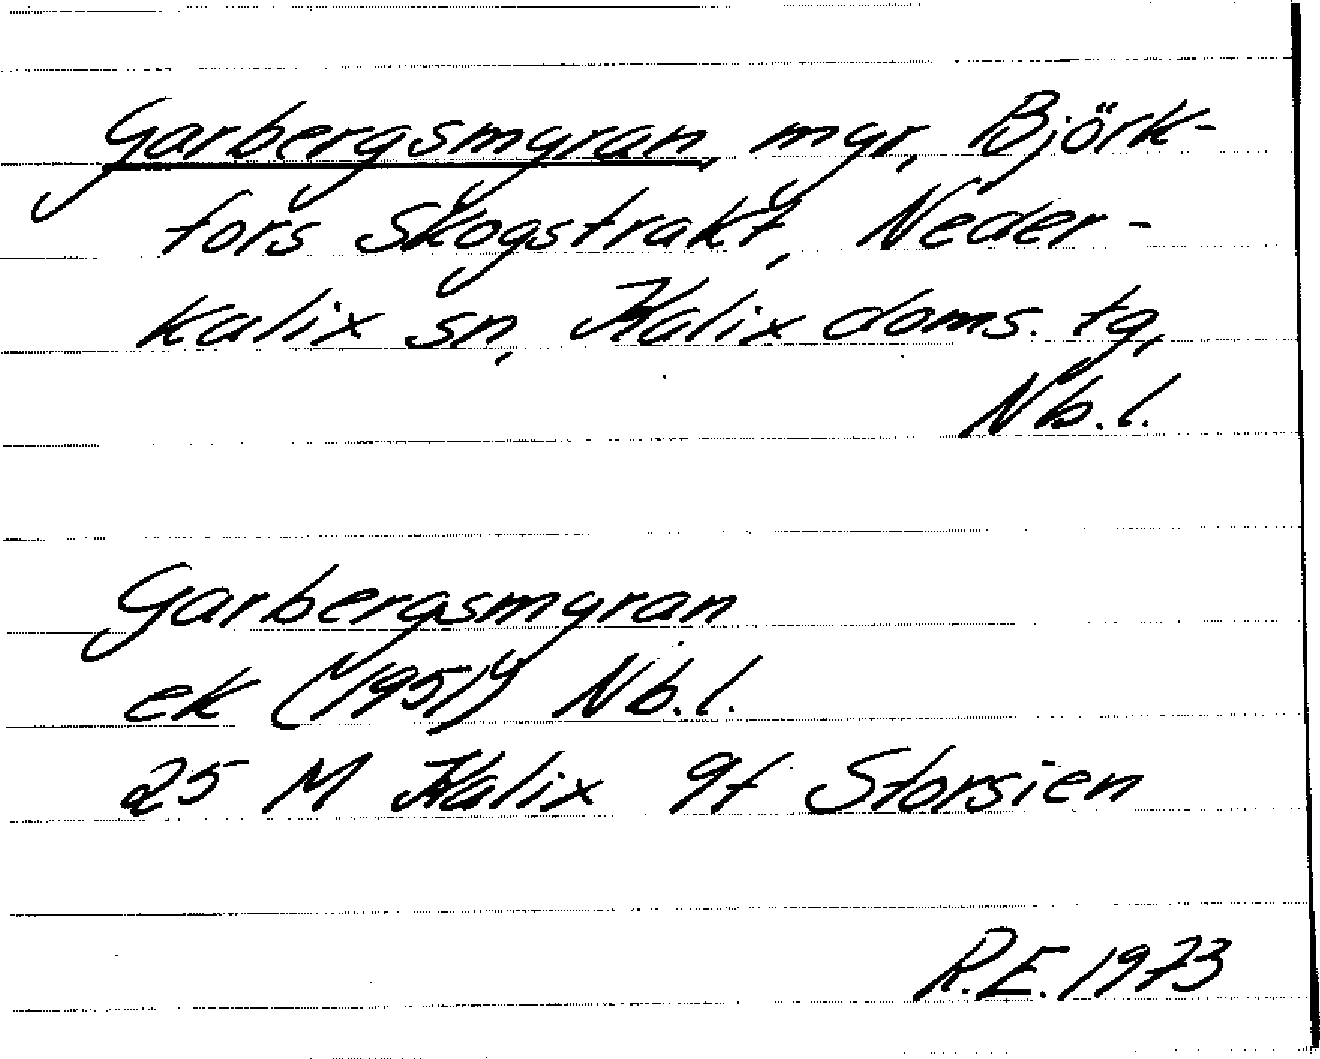 Garbergsmyran, myr, Björk-
fors Skogstrakt, Neder-
kalix sn, Kalix doms. tg,
Nb.l.
Garbergsmyran
ek (1951) Nb.l.
25 M Kalix 9f Storsien
R.E. 1973